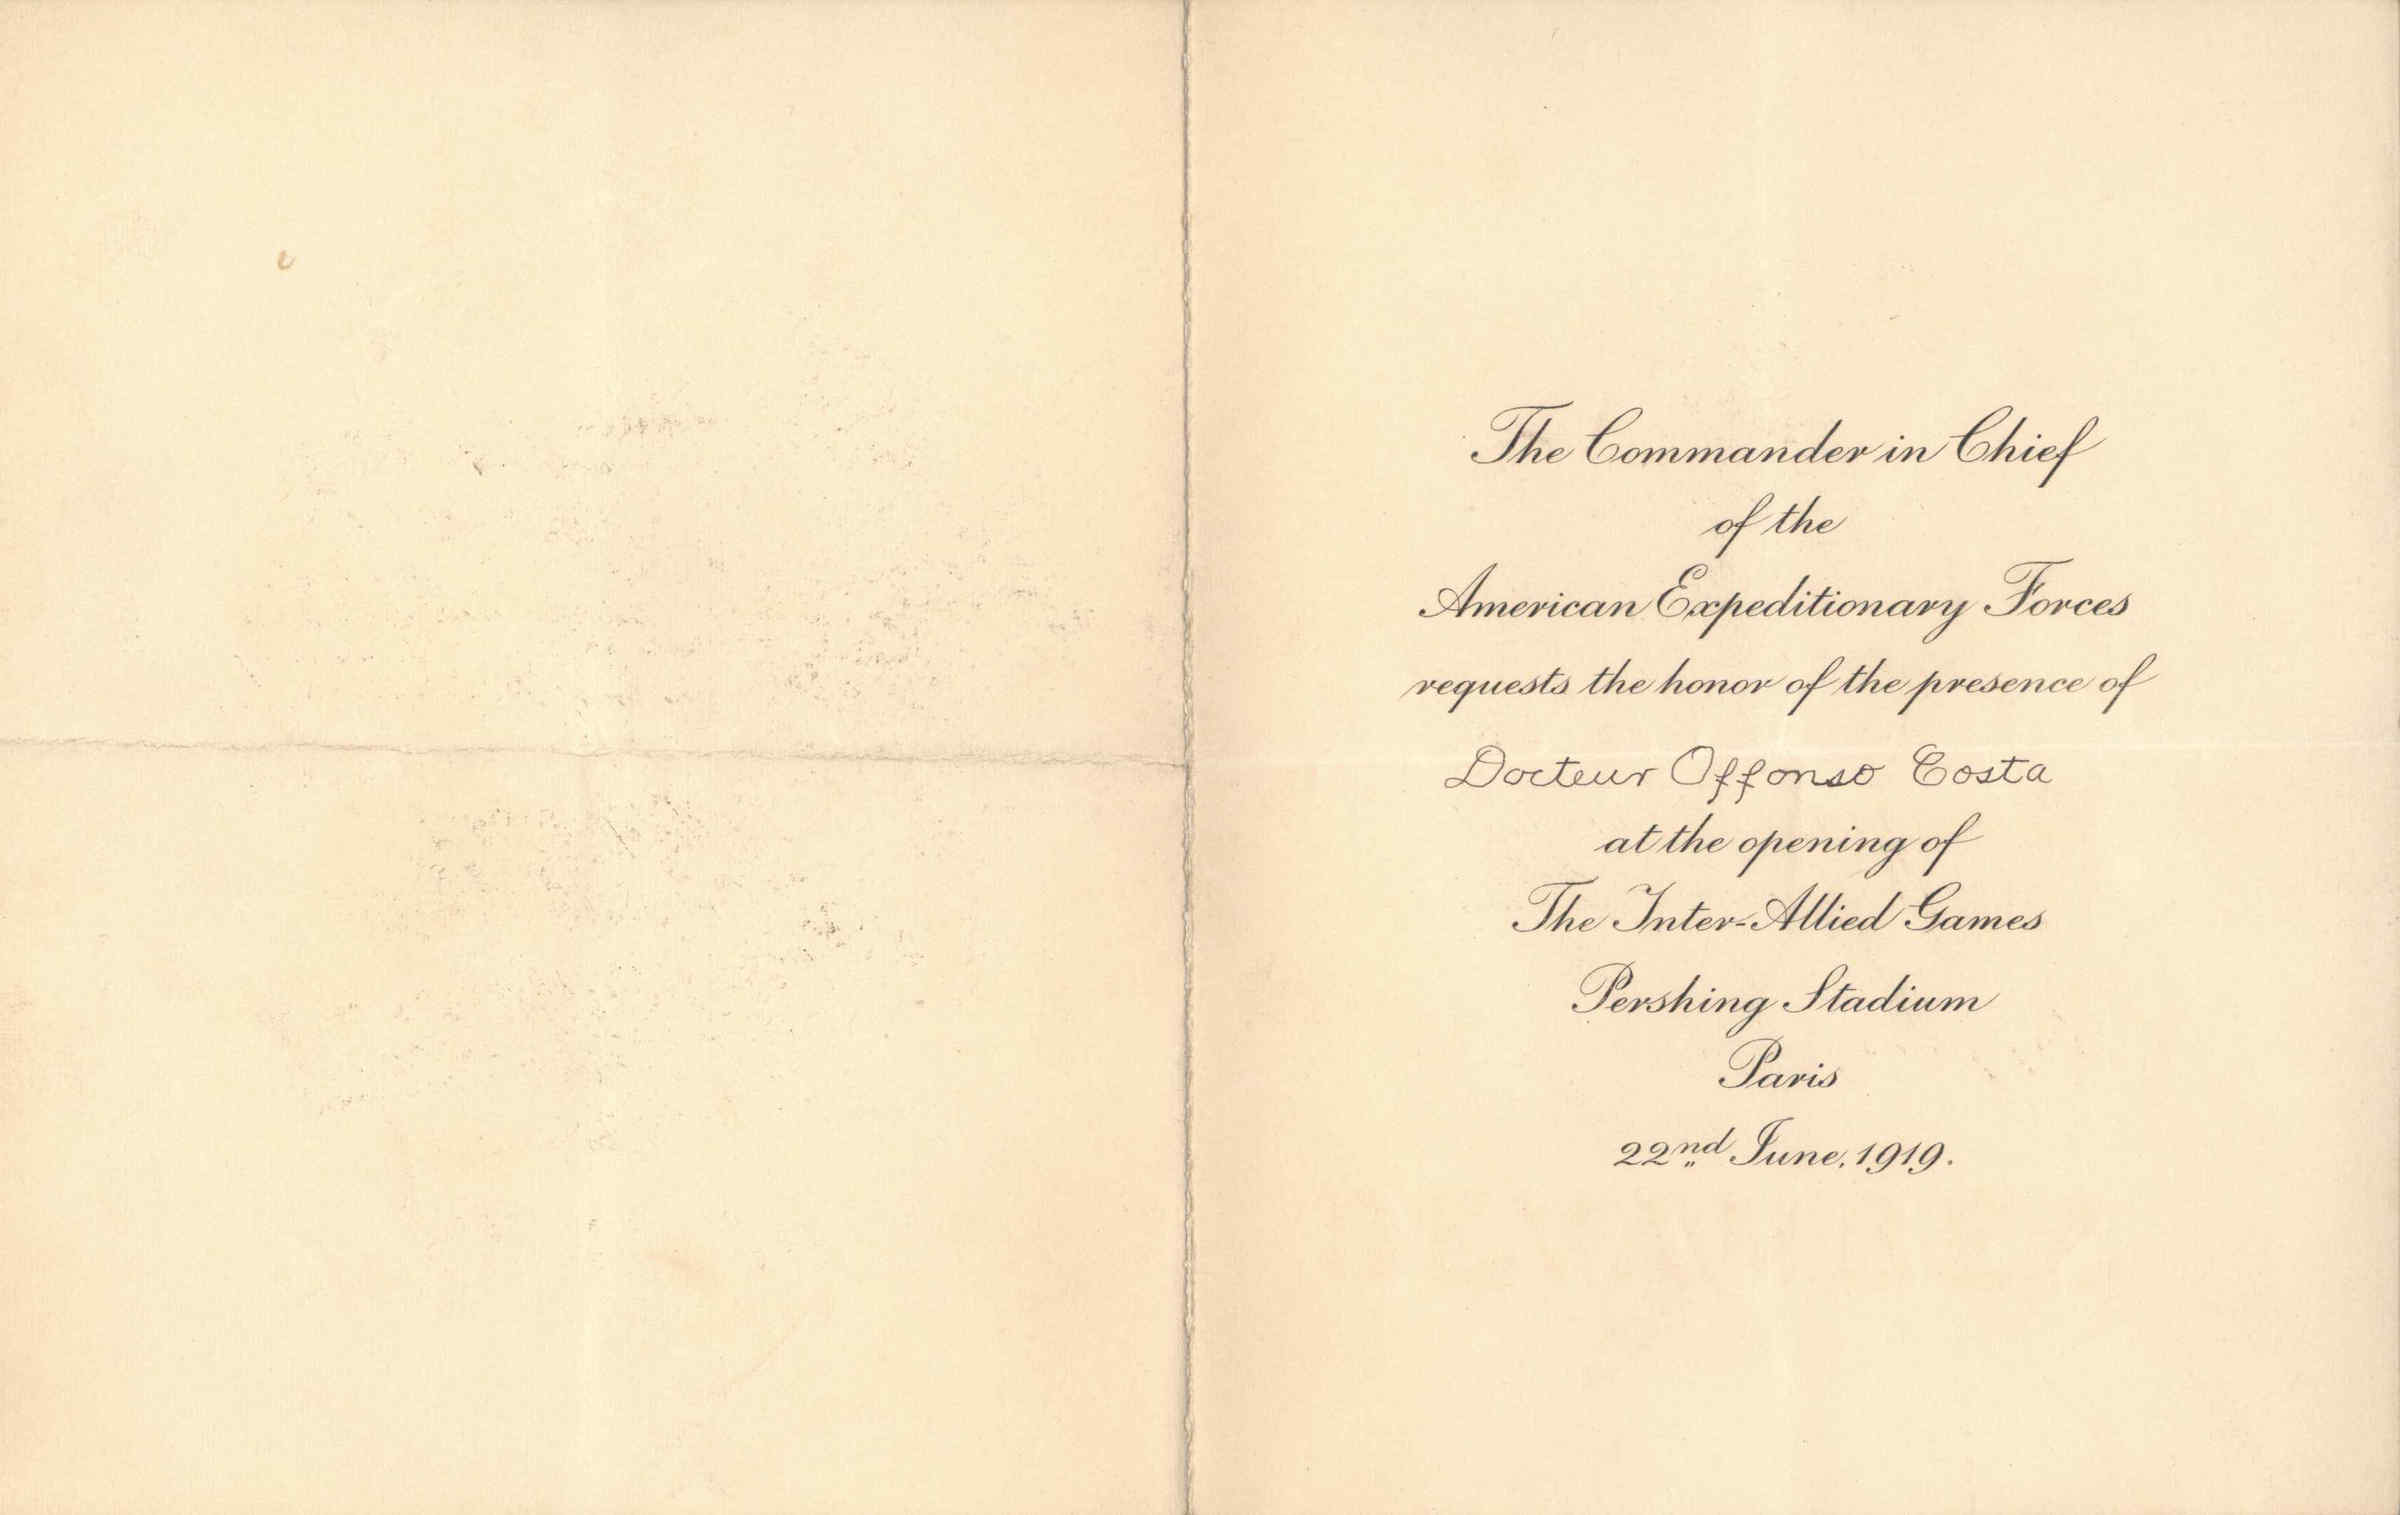 The Commander in Chief
of the
American Expeditionary Forces
requests the honor of the presence of
Docteur Offonso Costa
at the opening of
The Inter-Allied Games
Pershing Stadium
Paris
22nd June, 1919.